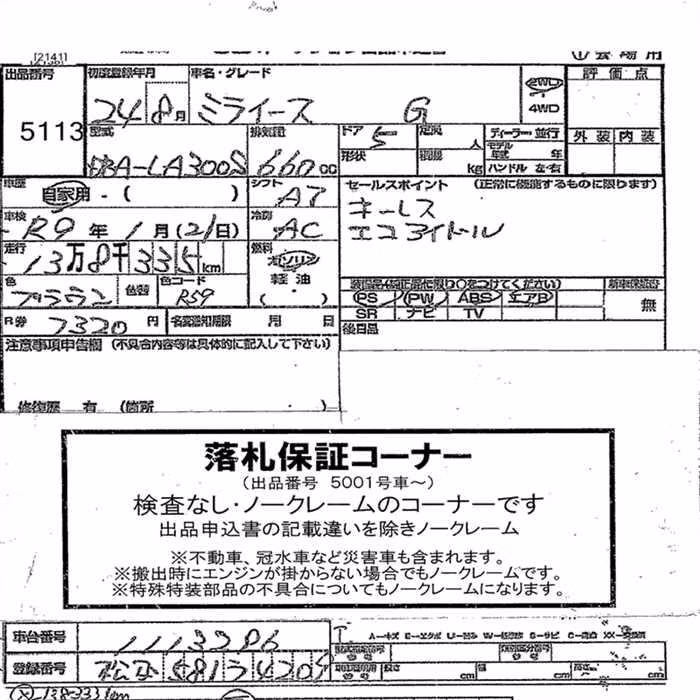 [2141]
出品番号 初度登録年月 車名・グレード 2WD 4WD 評価点
5113 24 8月 ミライース G
型式 排気量 ドア 定員 ディーラー 並行 外装 内装
DBA-LA300S 660cc 5 形状 人 kg モデル年式 年 ハンドル 左・右
車歴 自家用・( ) シフト AT セールスポイント (正常に機能するものに限ります)
車検 R9年 1月(21日) 冷房 AC キーレス
エコアイドル
走行 13万8千335km 燃料 ガソリン 軽油 ( ・ )
装備品(純正品に限り○をつけてください) 新車保証書
色 ブラウン 色替 色コード R59 PS PW ABS エアB 無
SR ナビ TV
R券 7320円 名変期限 月 日 後日品
注意事項申告欄 (不具合内容等は具体的に記入して下さい)
修復歴 有 (箇所 ・ )
落札保証コーナー
(出品番号 5001号車~)
検査なし・ノークレームのコーナーです
出品申込書の記載違いを除きノークレーム
※不動車、冠水車など災害車も含まれます。
※搬出時にエンジンが掛からない場合でもノークレームです。
※特殊特装部品の不具合についてもノークレームになります。
車台番号 1113286 A-キズ E-エクボ U-凹み S-サビ
登録番号 松本 581 4209 長さ cm 幅 cm 高さ cm
138333km